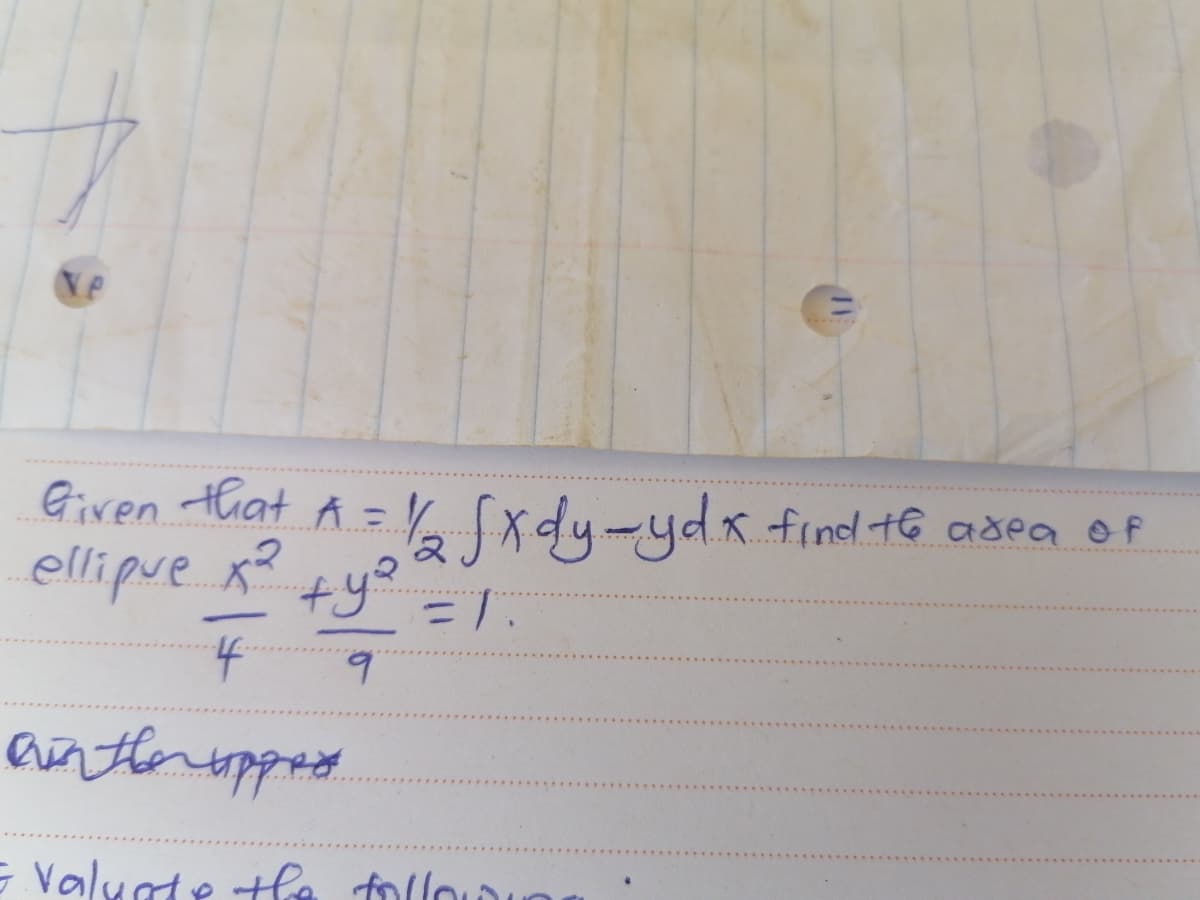 VP =
Given that A = 1/2 ∫xdy-ydx find the area of
ellipse x²/4 + y²/9 = 1.
Valuate the following